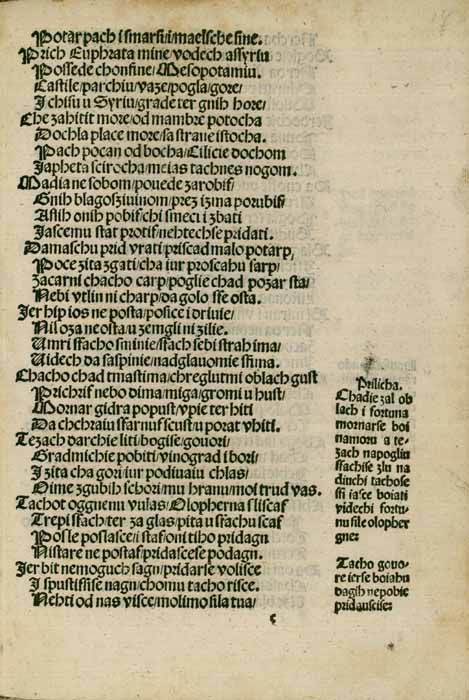 Potar pach i smarsi/i maelsche sine.
Prich Euphrata mine/vodech assyriu
Possede chonsine/Mesopotamiu.
Castile/parchiu/vaze/pogla/gore/
I chisu u Syriu/grade ter gnih hore/
Che zahitit more/od mambre potocha
Dochla place more/sa strane istocha.
Pach pocan od bocha/Cilicie dochom
Japheta scirocha/meias tachnes nogom.
Madia ne sobom/povede zarobis/
Gnih blagoszivinom/prez izma porubis/
A stih onih pobis/chi smeci i zbati
Ja scemu stat protis/ne htechse pridati.
Damaschu prid vrati/priscad malo potarp/
Poce zita zgati/cha iur proscahu sarp/
Zacarni chacho carp/poglie chad pozar sta/
Nebi vtlin ni charp/da golo sse osta.
Jer hip ios ne posta/posice i drivie/
Ni loza ne osta/u zemgli ni zilie.
Umri sfacho sminie/sfach sebi strah ima/
Uidech da saspinie/nad glauomie sfima.
Chacho chad tmastima/chreglutmi oblach gust
Prichrif nebo dima/miga/gromi u hust/
Mornar gidra popust/vpie ter hiti
Da chchraiu sfar nuf scust/u porat vhiti.
Tezach darchie liti/bogise/gouori/
Gradmichie pobiti/vinograd i bori/
I zita cha gori/iur podiuaiu chlas/
Oime zgubih schori/mu hranu/moi trud vas.
Tachot oggnenu vulas/Olopherna sliscaf
Trepi sfach/ter za glas/pita u sfachu scaf
Posle poslasce/i stafoni tiho pridagn
Nistare ne postaf/pridascese podagn.
Jer bit nemoguch sagn/pridarse volisce
I spustifsise nagn/chomu tacho risce.
Nehti od nas visce/molimo sila tua/
c
Prilicha.
Chadie zal ob
lach i fortuna
mornarse boi
namoru a te-
zach napogliu
sfachise zlu na
diuchi tachose
sfi iasce boiati
videchi fortu-
nu sile olopher
gne:
Tacho gouo-
re ierse boiahu
dagih nepobie
pridauscise: